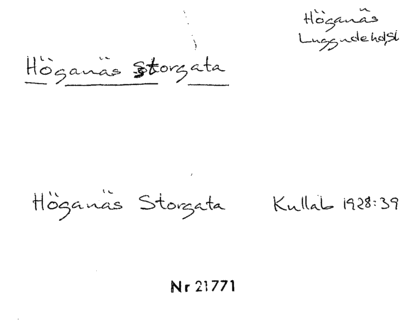 Höganäs
Luggudehdsl
Höganäs Storgata
Höganäs Storgata Kullab 1928:39
Nr 21771